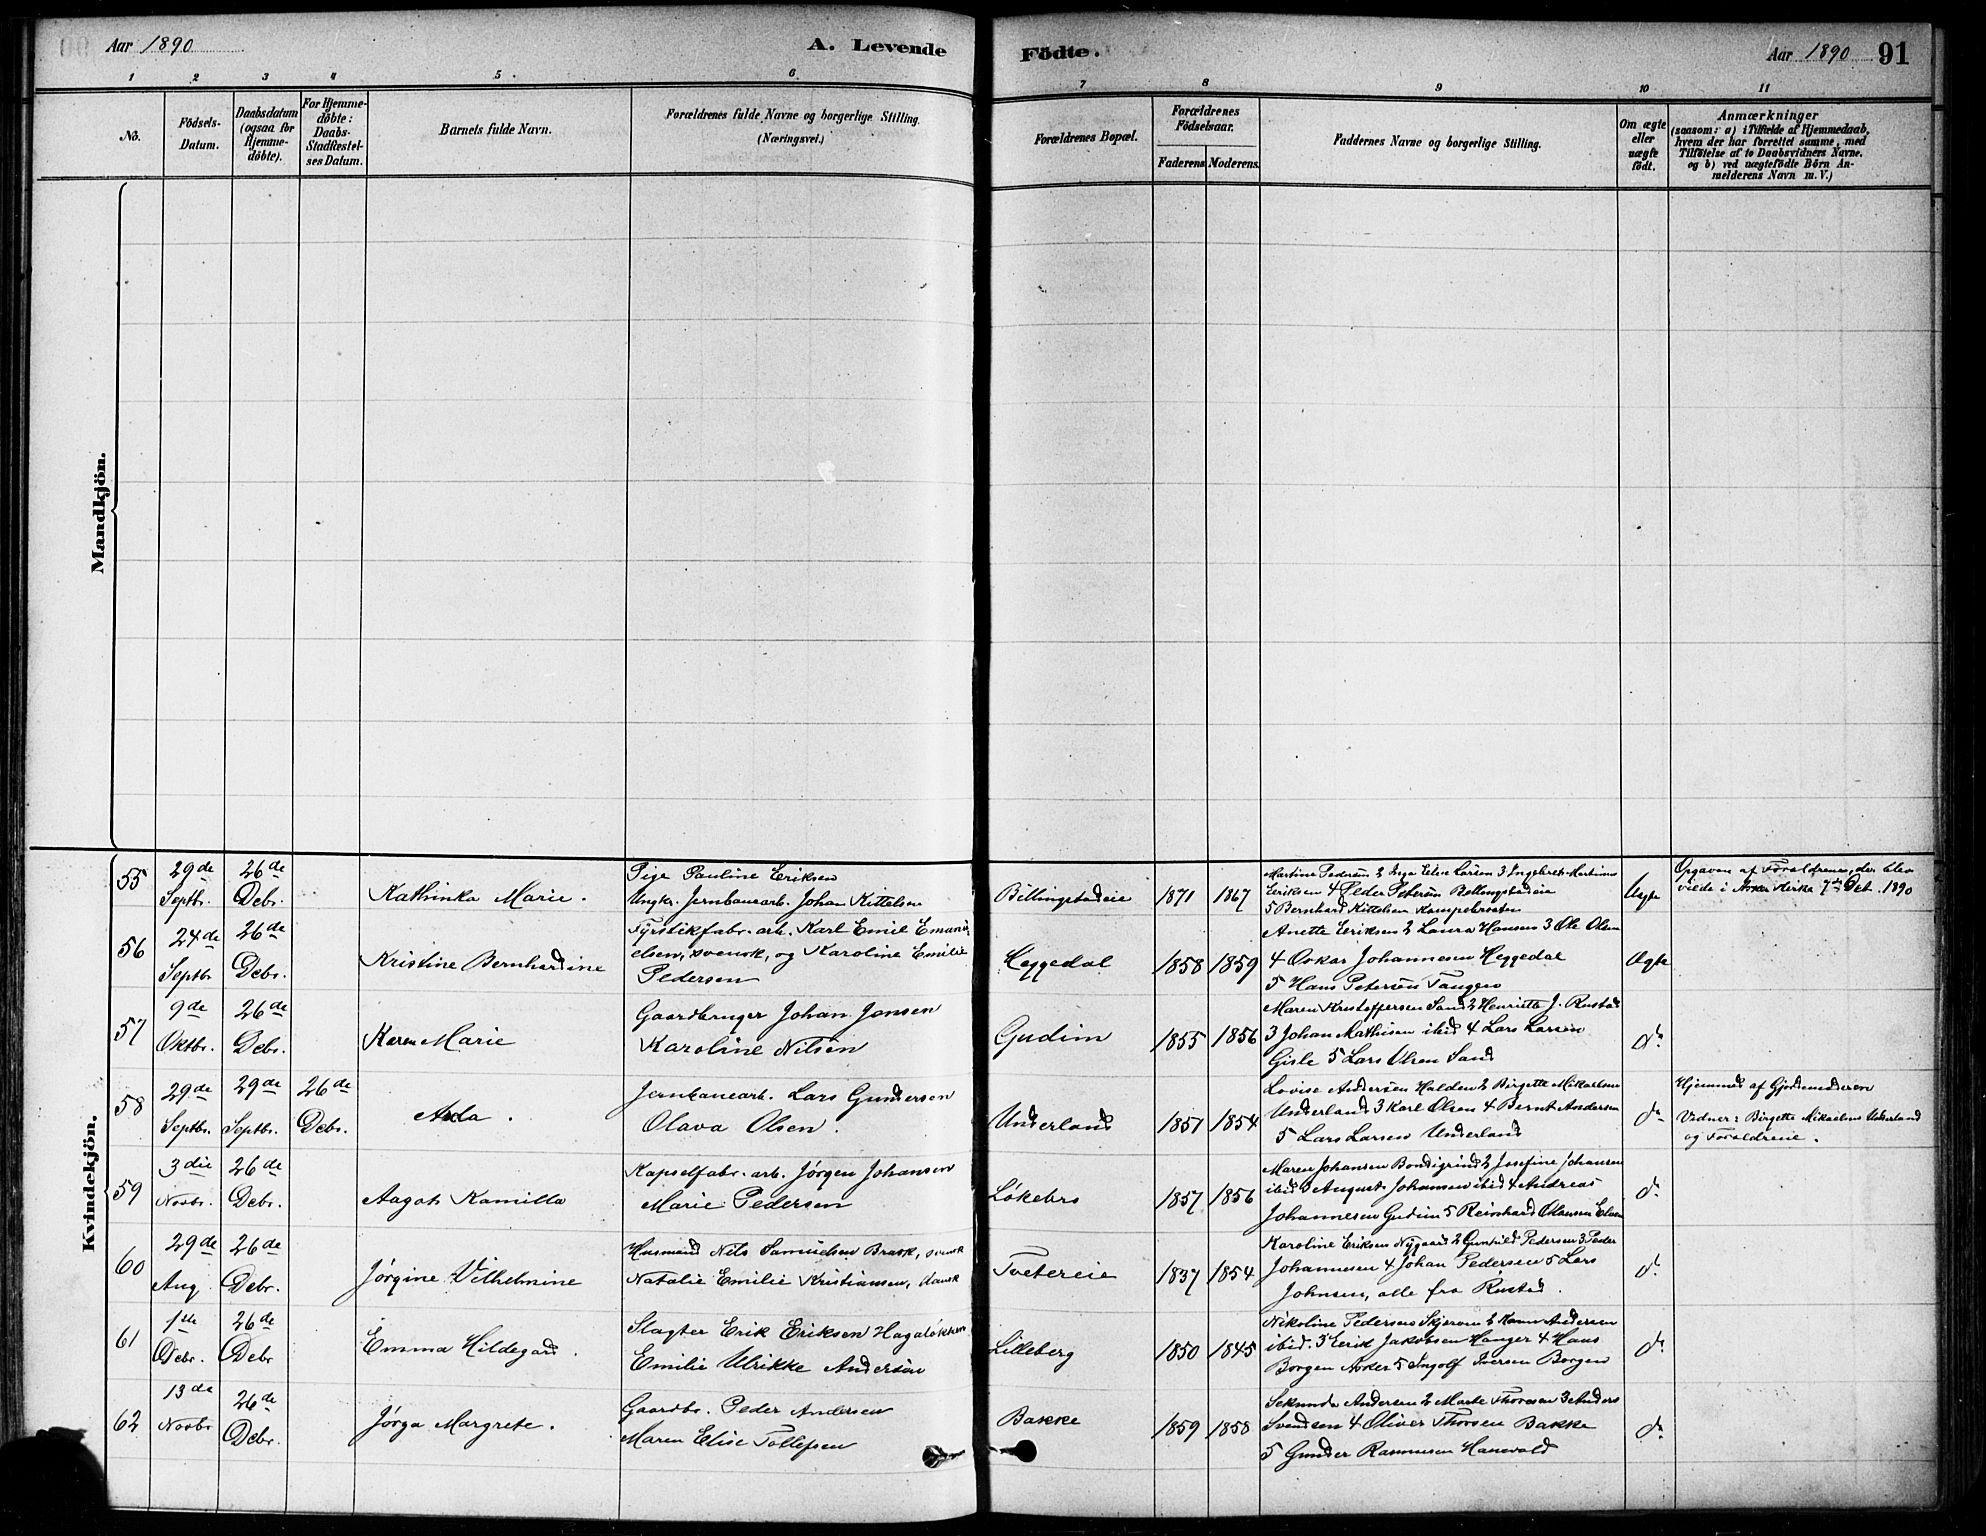 Aar 1890
A. Levende
Födte.
Aar 1890
91
1 2 3 4 5 6 7 8 9 10 11
No.
Födsels-
Datum.
Daabsdatum
(ogsaa for
Hjemme-
döbte).
For Hjemme-
döbte:
Daabs-
Stadfæstel-
ses Datum.
Barnets fulde Navn.
Forældrenes fulde Navne og borgerlige Stilling.
(Næringsvei.)
Forældrenes Bopæl.
Forældrenes
Födselsaar.
Faderens Moderens.
Faddernes Navne og borgerlige Stilling.
Om ægte
eller
uægte
födt.
Anmærkninger
(saasom: a) i Tilfælde af Hjemmedaab,
hvem der har forrettet samme, med
Tilföielse af to Daabsvidners Navne.
og b) ved uægtefödte Börn An-
melderens Navn m. V.)
Mandkjön.
Kvindekjön.
55
29de
Septbr.
26de
Debr.
Kathinka Marie.
Pige Pauline Eriksen
Ungk. Jernbanearb. Johan Kittelsen
Billingstadeie
1871
1867
Martine Pedersen 2 Inga Elise Larsen 3 Ingebret Martinus
Eriksen 4 Peder Petersen Billingstadeie
5 Bernhard Kittelsen
Uægte
Opgaven af Forældrene, der blev
viede i Asker Kirke 7de Deb. 1890
56
24de
Septbr
26de
Debr.
Kristine Bernhardine
Fyrstikfabr. arb. Karl Emil Emanu-
elsen, svensk, og Karoline Emilie
Pedersen
Heggedal
1858
1859
Anette Eriksen 2 Laura Hansen 3 Ole Olsen
4 Oskar Johannesen Heggedal
5 Hans Petersen Tangen
Ægte
57
9de
Oktbr.
26de
Debr.
Karen Marie
Gaardbruger Johan Jonsen
Karoline Nilsen
Gudim
1855
1856
Maren Kristoffersen Sand 2 Henriette J. Rustad
3 Johan Mathisen ibid 4 Lars Larsen
Gisle 5 Lars Olsen Sand
do
58
29de
Septbr.
29de
Septbr.
26de
Debr.
Asla.
Jernbanearb. Lars Gundersen
Olava Olsen.
Underland
1851
1854
Lovise Andersen Halden 2 Birgette Mikaelsen
Underland 3 Karl Olsen 4 Bernt Andersen
5 Lars Larsen Underland
do
Hjemmed. af Gjordemoderen
Vidner: Birgette Mikaelsen Underland
og Forældrene.
59
3die
Novbr.
26de
Debr.
Aagot Kamilla
Kapselfabr. arb. Jørgen Johansen
Marie Pedersen
Løkebro
1857
1856
Maren Johansen Bondigrind 2 Josefine Johansen
ibid 3 August Johansen ibid 4 Andreas
Johannesen Gudim 5 Reinhard Olausen
do
60
29de
Aug.
26de
Debr.
Jørgine Vilhelmine
Husmand Nils Samuelsen Brask, svensk
Natalie Emilie Kristiansen, dansk
Tvetereie
1837
1854
Karoline Eriksen Nygaard 2 Gunhild Pedersen 3 Peder
Johannesen 4 Johan Pedersen 5 Lars
Johnsen, alle fra Rustad.
do
61
1ste
Debr.
26de
Debr
Emma Hildegard.
Slagter Erik Eriksen Hagaløkken
Emilie Ulrikke Andersen
Lilleberg
1850
1845
Nikoline Pedersen Skjerven 2 Karen Andersen
ibid. 3 Erik Jakobsen Hanger 4 Hans
Borgen Asker 5 Ingolf Iversen Borgen
do
62
13de
Novbr
26de
Debr.
Jørga Margrete.
Gaardbr. Peder Andersen
Maren Elise Tollefsen
Bakke
1859
1858
Sekunda Andersen 2 Marte Thoresen 3 Anders
Svendsen 4 Oliver Thorsen Bakke
5 Gunder Rasmusen Hanevold
do